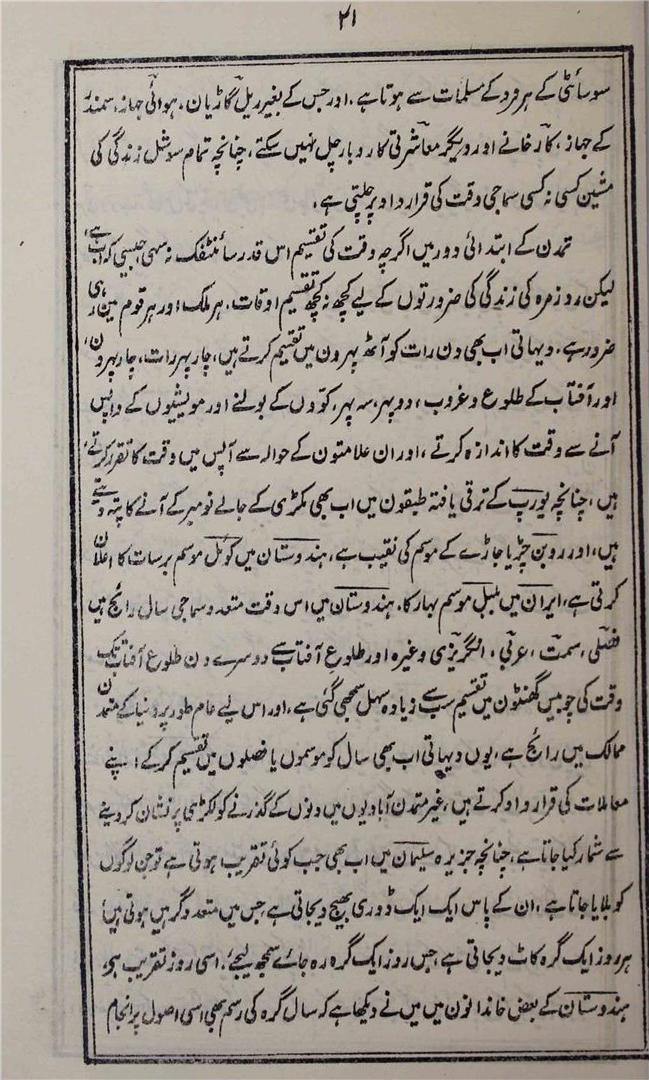 ۲۱
سوسائٹی کے ہر فرد کے مسلمات سے ہوتا ہے، اور جس کے بغیر ریل گاڑیان، ہوائی جہاز، سمندر
کے جہاز، کارخانے اور دیگر معاشرتی کاروبار چل نہیں سکتے، چنانچہ تمام سوشل زندگی کی
مشین کسی نہ کسی سماجی وقت کی قرارداد پر چلتی ہے،
تمدن کے ابتدائی دور میں اگرچہ وقت کی تقسیم اس قدر سائنٹفک نہ سہی جیسی کہ اب ہے،
لیکن روزمرہ کی زندگی کی ضرورتوں کے لیے کچھ نہ کچھ تقسیم اوقات، ہر ملک اور ہر قوم مین رہی
ضرور ہے، دیہاتی اب بھی دن رات کو آٹھ پہرون میں تقسیم کرتے ہیں، چار پہر رات، چار پہر دن،
اور آفتاب کے طلوع و غروب، دوپہر، سہ پہر، کوّوں کے بولنے اور مویشیوں کے واپس
آنے سے وقت کا اندازہ کرتے، اور ان علامتون کے حوالہ سے آپس میں وقت کا تقرر کرتے
ہیں، چنانچہ یورپ کے ترقی یافتہ طبقون میں اب بھی مکڑی کے جالے نومبر کے آنے کا پتہ دیتے
ہیں، اور روبن چڑیا جاڑے کے موسم کی نقیب ہے، ہندوستان میں کوئل موسم برسات کا اعلان
کرتی ہے، ایران میں بلبل موسم بہار کا، ہندوستان میں اس وقت متعدد سماجی سال رائج ہیں
فصلی، سمت، عربی، انگریزی وغیرہ اور طلوع آفتاب سے دوسرے دن طلوع آفتاب تک
وقت کی چوبیس گھنٹون میں تقسیم سب سے زیادہ سہل سمجھی گئی ہے، اور اس لیے عام طور پر دنیا کے متمدن
ممالک میں رائج ہے، یوں دیہاتی اب بھی سال کو موسموں یا فصلوں میں تقسیم کر کے اپنے
معاملات کی قرارداد کرتے ہیں، غیر متمدن آبادیوں میں دنوں کے گذرنے کو لکڑی پر نشان کر دینے
سے شمار کیا جاتا ہے، چنانچہ جزیرہ سلیمان میں اب بھی جب کوئی تقریب ہوتی ہے تو جن لوگوں
کو بلایا جاتا ہے، ان کے پاس ایک ایک ڈوری بھیج دیجاتی ہے جس میں متعدد گرہیں ہوتی ہیں،
ہر روز ایک گرہ کاٹ دیجاتی ہے، جس روز ایک گرہ رہ جائے سمجھ لیجئے، اسی روز تقریب ہے،
ہندوستان کے بعض خاندانون میں میں نے دیکھا ہے کہ سال گرہ کی رسم بھی اسی اصول پر انجام